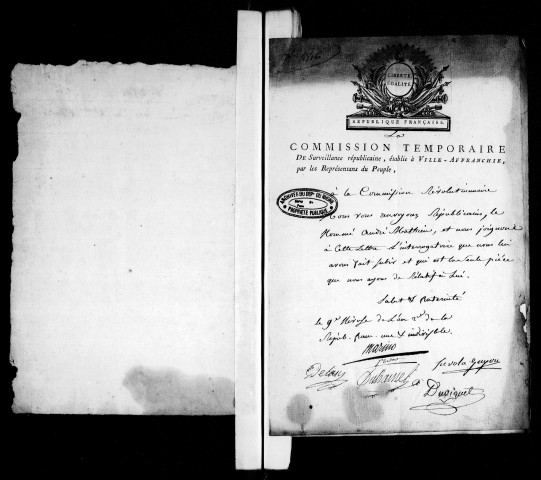 LIBERTÉ
ÉGALITÉ
RÉPUBLIQUE FRANÇAISE.
La
COMMISSION TEMPORAIRE
DE Surveillance républicaine, établie à VILLE-AFFRANCHIE,
par les Représentans du Peuple,
à la Commission Révolutionnaire
ARCHIVES DU DEP. DU RHÔNE
PROPRIÉTÉ PUBLIQUE
Nous vous envoyons Républicains, le
Nommé André Mathieu, et nous joignons
à Cette Lettre L'interrogatoire que nous lui
avons fait subir et qui est la seule pièce
que nous ayons de Rélatif à Lui.
Salut & fraternité
le 9e Nivose de L'an 2d de la
Répub. fran. une & indivisible.
Marino
Delan
Duhamel
Guyon
Duviquet